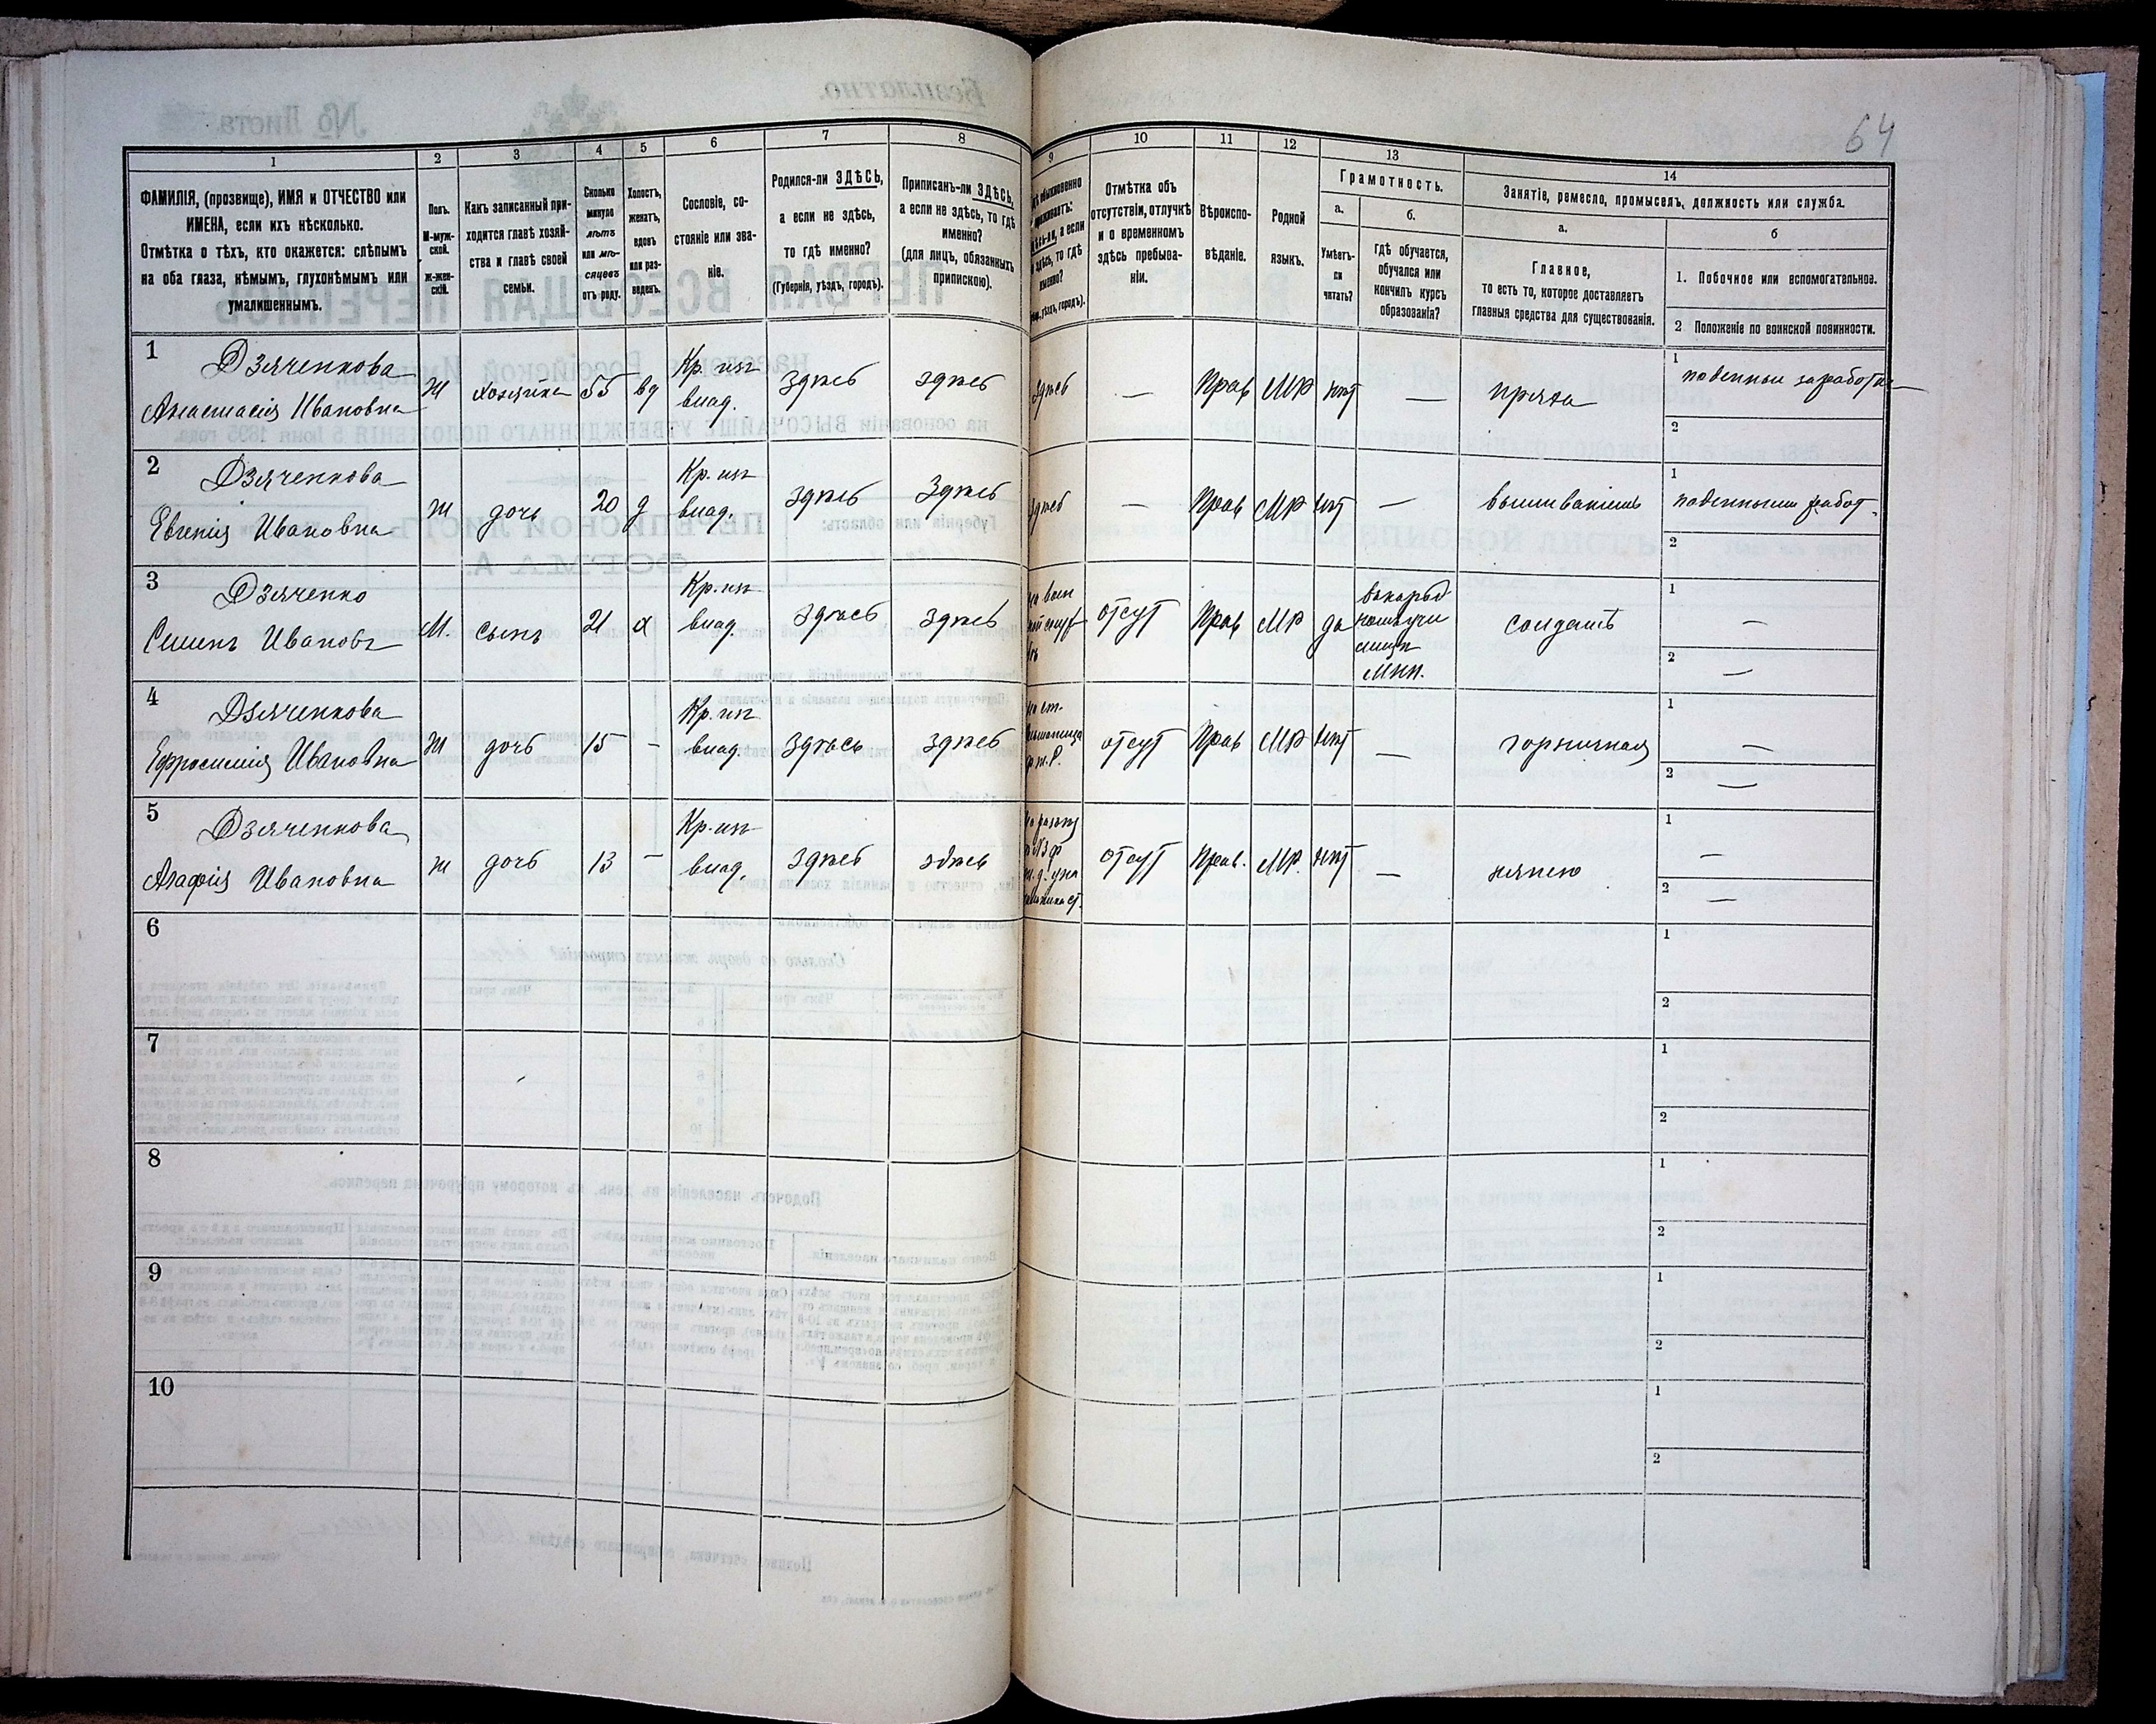 64
1
2
3
4
5
6
7
8
9
10
11
12
13
14
ФАМИЛІЯ, (прозвище), ИМЯ и ОТЧЕСТВО или
ИМЕНА, если ихъ нѣсколько.
Отмѣтка о тѣхъ, кто окажется: слѣпымъ
на оба глаза, нѣмымъ, глухонѣмымъ или
умалишеннымъ.
Полъ.
М-муж-
ской.
Ж-жен-
скій.
Какъ записанный при-
ходится главѣ хозяй-
ства и главѣ своей
семьи.
Сколько
минуло
лѣтъ
или мѣ-
сяцевъ
отъ роду.
Холостъ,
женатъ,
вдовъ
или раз-
веденъ.
Сословіе, со-
стояніе или зва-
ніе.
Родился-ли ЗДѢСЬ,
а если не здѣсь,
то гдѣ именно?
(Губернія, уѣздъ, городъ).
Приписанъ-ли ЗДѢСЬ,
а если не здѣсь, то гдѣ
именно?
(для лицъ, обязанныхъ
припискою).
обыкновенно
а если
здѣсь, то гдѣ
Отмѣтка объ
отсутствіи, отлучкѣ
и о временномъ
здѣсь пребыва-
ніи.
Вѣроиспо-
вѣданіе.
Родной
языкъ.
Грамотность.
а.
Умѣетъ-
ли
читать?
б.
Гдѣ обучается,
обучался или
кончилъ курсъ
образованія?
Занятіе, ремесло, промыселъ, должность или служба.
а.
Главное,
то есть то, которое доставляетъ
главныя средства для существованія.
б
1. Побочное или вспомогательное.
2 Положеніе по воинской повинности.
1 Дзяченкова
Анастасія Ивановна
ж хозяйка 55 вд Кр. изъ
влад. здѣсь здѣсь здѣсь — Прав МР нѣт — пряха
1 поденныи заработки
2
2 Дзяченкова
Евгенія Ивановна
ж дочь 20 д Кр. изъ
влад. здѣсь здѣсь здѣсь — Прав МР нѣт — вышиваніемъ
1 поденными работ.
2
3 Дзяченко
Семенъ Ивановъ
М. сынъ 21 х Кр. изъ
влад. здѣсь здѣсь отсут Прав МР да МНП. солдатъ
1 —
2 —
4 Дзяченкова
Ефросинія Ивановна
ж дочь 15 - Кр. изъ
влад. здѣсь здѣсь отсут Прав МР нѣт — горничная
1 —
2 —
5 Дзяченкова
Агафія Ивановна
ж дочь 13 - Кр. изъ
влад. здѣсь здѣсь отсут Прав. МР. нѣт — нянею
1 —
2 —
6
1
2
7
1
2
8
1
2
9
1
2
10
1
2